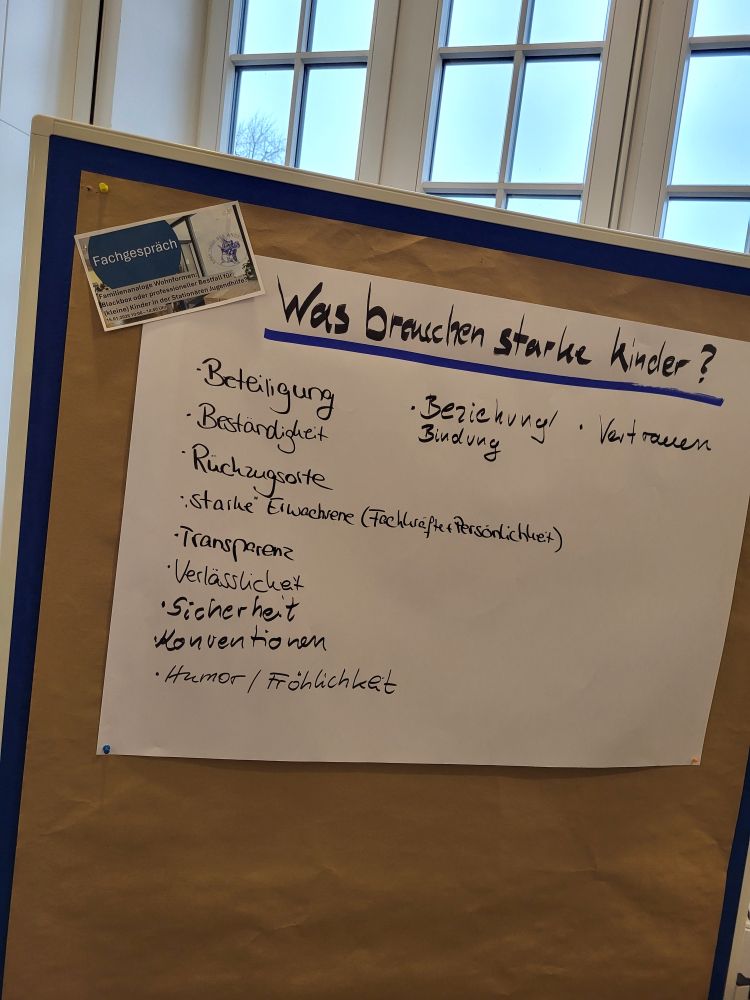 Fachgespräch
Familienanaloge Wohnformen:
Blackbox oder professioneller Bestfall für
(kleine) Kinder in der Stationären Jugendhilfe?
Was brauchen starke Kinder?
· Beteiligung
· Beständigkeit
· Rückzugsorte
· „starke“ Erwachsene (Fachkräfte + Persönlichkeit)
· Transparenz
· Verlässlichkeit
· Sicherheit
· Konventionen
· Humor / Fröhlichkeit
· Beziehung/
Bindung
· Vertrauen